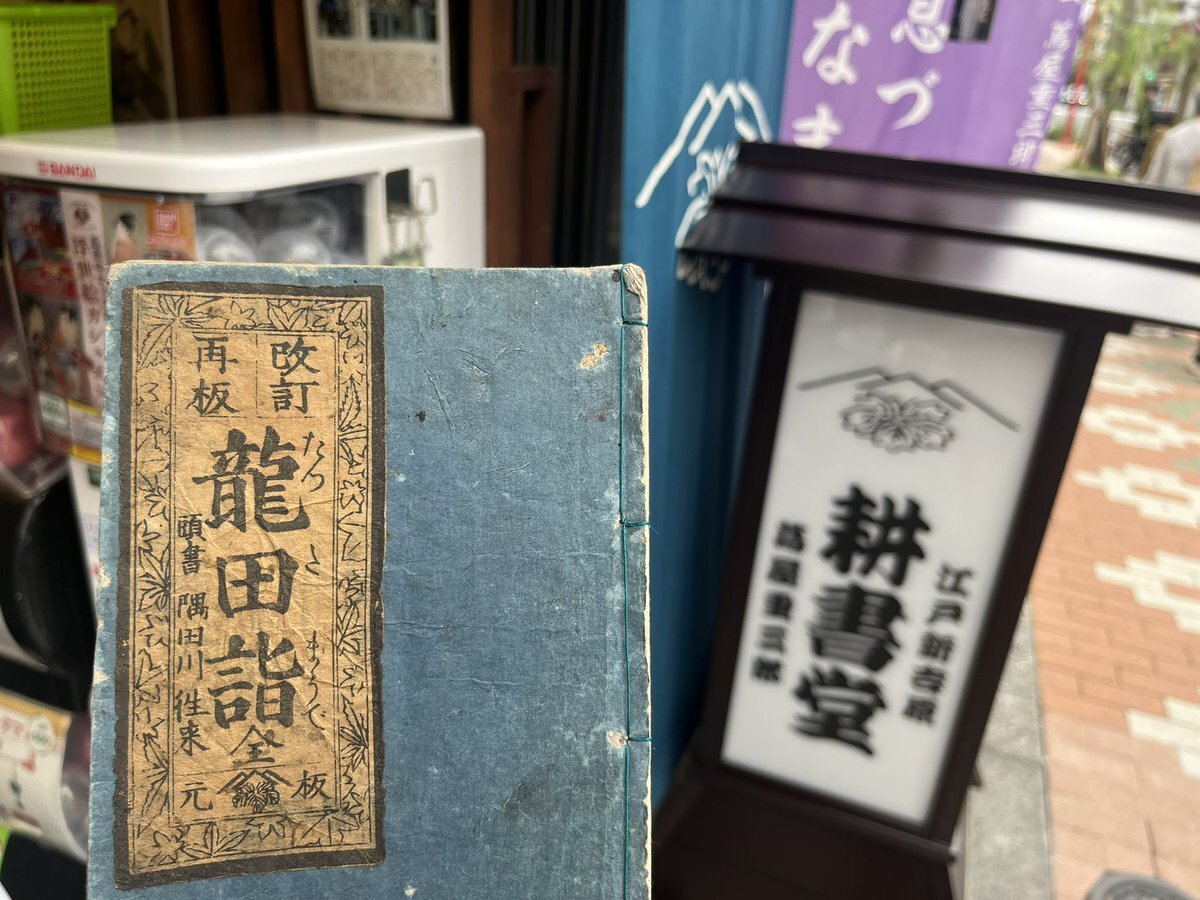 改訂
再板
たつた まうで
龍田詣 全
頭書 隅田川往来
板元
江戸新吉原
耕書堂
蔦屋重三郎
蔦屋重三郎
息づ
なま
BANDAI